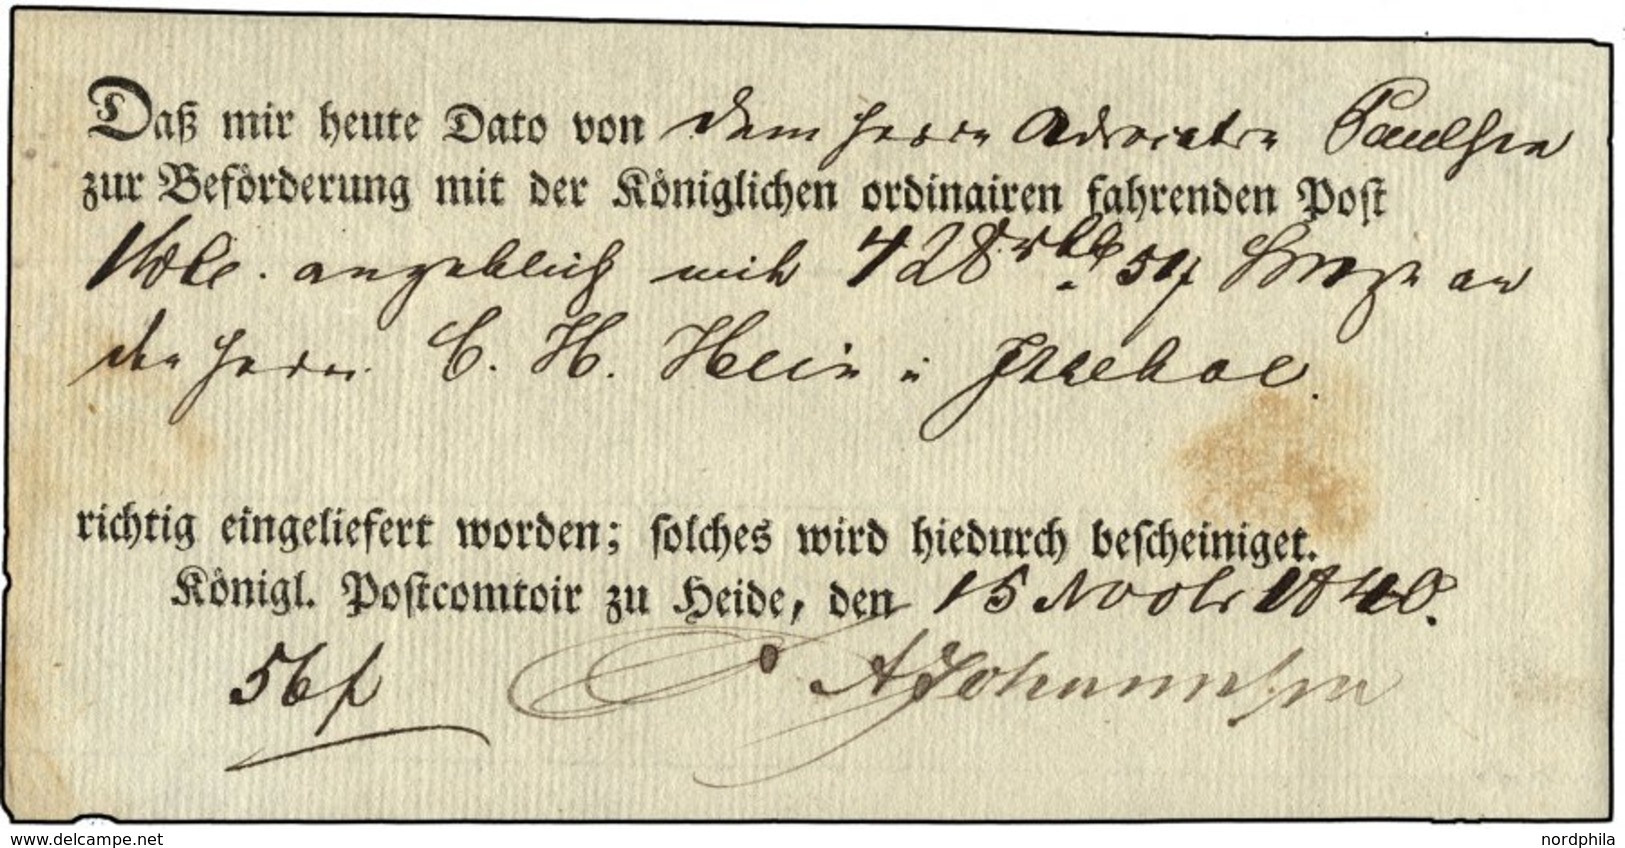 Daß mir heute Dato von dem Herrn Advocaten Paulsen
zur Beförderung mit der Königlichen ordinairen fahrenden Post
angeblich mit 428 rblr 5 an
den Herrn C. H. Hein in Itzehoe.
richtig eingeliefert worden; solches wird hiedurch bescheiniget.
Königl. Postcomtoir zu Heide, den 15 Novbr 1840.
56 f Johannsen
www.delcampe.net
nordphila